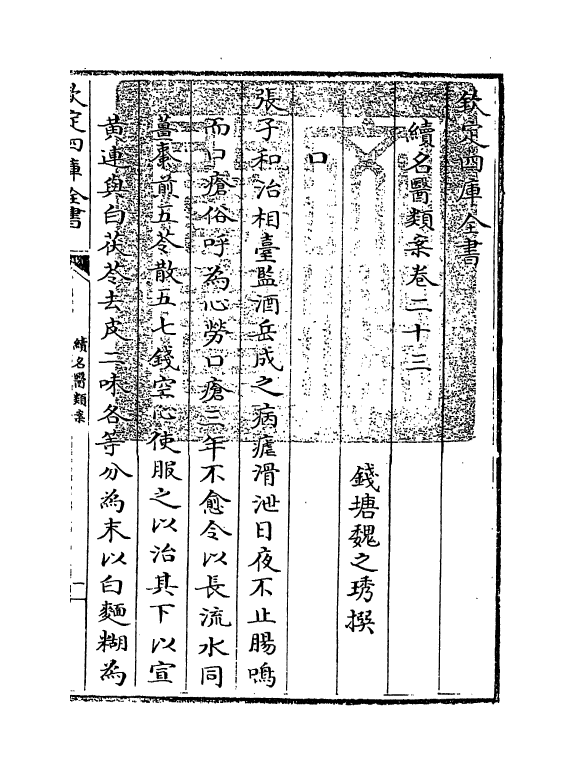 欽定四庫全書
續名醫類案卷二十三
錢塘魏之琇撰
口
張子和治相臺監酒岳成之病虛滑泄日夜不止腸鳴
而口瘡俗呼為心勞口瘡三年不愈令以長流水同
薑棗煎五苓散五七錢空心使服之以治其下以宣
黃連與白茯苓去皮二味各等分為末以白麵糊為
欽定四庫全書
續名醫類案
一